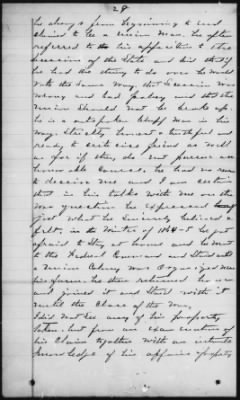 28
he always from beginning to end
claimed to be a Union man. He often
referred to his opposition to the
secession of the State and his that if
he had the thing to do over he would
vote the same way, that Secession was
wrong and bad policy and that the
Union should not be broke up.
he is a outspoken bluff man in his
way. Strictly honest & truthful and
ready to criticise friend as well
as foe if they do not pursue an
honorable course, he had no reason
to deceive me and I am certain
that in his talks with me on the
War question he expressed
just what he sincerely believed &
felt, in the Winter of 1864-5 he got
afraid to stay at home and he went
to the Federal Command and staid until
a Union Colony was Organized near
his farm. he then returned home
and joined it and staid with it
until the close of the War,
I did not see any of his property
taken, but from an examination of
his Claim together with an intimate
knowledge of his affairs & property